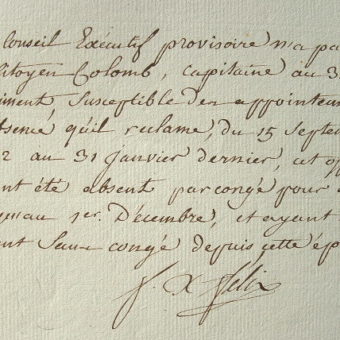 Conseil Exécutif provisoire n'a pa
itoyen Colomb, capitaine au 3
iment, susceptible des appointem
bsence, qu'il reclame, du 15 Septem
2 au 31 janvier dernier, cet op
nt été absent par congé pour
qu'au 1er. Décembre, et ayant
nt Sans congé depuis cette ép
f. X felix